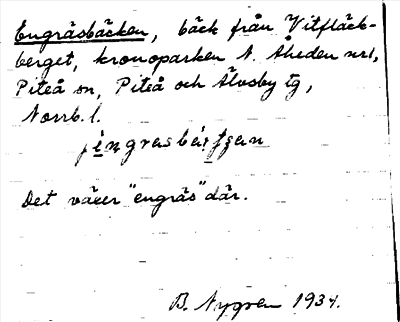 Engräsbäcken, bäck från Vitfläck-
berget, kronoparken N. Åheden nr1,
Piteå sn, Piteå och Älvsby tg,
Norrb. l.
Det växer "engräs" där.
B. Nygren 1934.